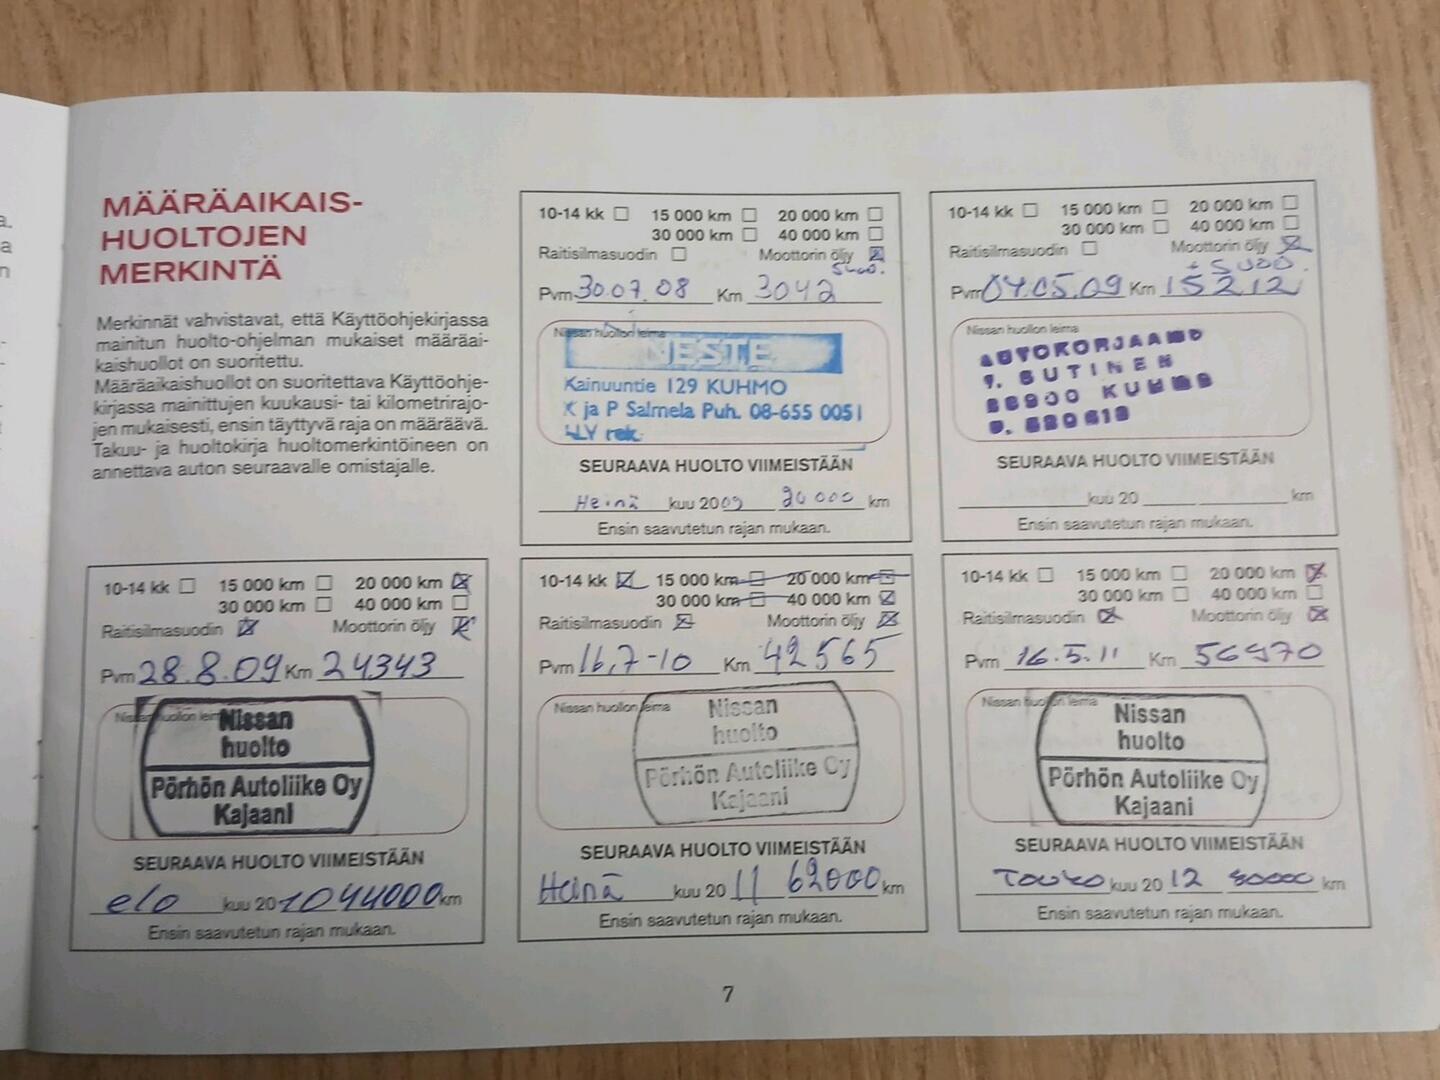 MÄÄRÄAIKAIS-
HUOLTOJEN
MERKINTÄ
Merkinnät vahvistavat, että Käyttöohjekirjassa
mainitun huolto-ohjelman mukaiset määräai-
kaishuollot on suoritettu.
Määräaikaishuollot on suoritettava Käyttöohje-
kirjassa mainittujen kuukausi- tai kilometrirajo-
jen mukaisesti, ensin täyttyvä raja on määräävä.
Takuu- ja huoltokirja huoltomerkintöineen on
annettava auton seuraavalle omistajalle.
10-14 kk 15 000 km 20 000 km
30 000 km 40 000 km
Raitisilmasuodin Moottorin öljy
Pvm 30.07.08 Km 3042
Nissan huollon leima
NESTE
Kainuuntie 129 KUHMO
K ja P Salmela Puh. 08-655 0051
ALV rek.
SEURAAVA HUOLTO VIIMEISTÄÄN
Heinä kuu 2009 20000 km
Ensin saavutetun rajan mukaan.
10-14 kk 15 000 km 20 000 km
30 000 km 40 000 km
Raitisilmasuodin Moottorin öljy
+ 5000.
Pvm 04.05.09 Km 15212
Nissan huollon leima
AUTOKORJAAMO
SUTINEN
88900 KUHMO
SEURAAVA HUOLTO VIIMEISTÄÄN
kuu 20 km
Ensin saavutetun rajan mukaan.
10-14 kk 15 000 km 20 000 km
30 000 km 40 000 km
Raitisilmasuodin Moottorin öljy
Pvm 28.8.09 Km 24343
Nissan huollon leima
Nissan
huolto
Pörhön Autoliike Oy
Kajaani
SEURAAVA HUOLTO VIIMEISTÄÄN
elo kuu 2010 44000 km
Ensin saavutetun rajan mukaan.
10-14 kk 15 000 km 20 000 km
30 000 km 40 000 km
Raitisilmasuodin Moottorin öljy
Pvm 16.7-10 Km 42565
Nissan huollon leima
Nissan
huolto
Pörhön Autoliike Oy
Kajaani
SEURAAVA HUOLTO VIIMEISTÄÄN
Heinä kuu 2011 62000 km
Ensin saavutetun rajan mukaan.
10-14 kk 15 000 km 20 000 km
30 000 km 40 000 km
Raitisilmasuodin Moottorin öljy
Pvm 16.5.11 Km 56970
Nissan huollon leima
Nissan
huolto
Pörhön Autoliike Oy
Kajaani
SEURAAVA HUOLTO VIIMEISTÄÄN
Touko kuu 2012 80000 km
Ensin saavutetun rajan mukaan.
7